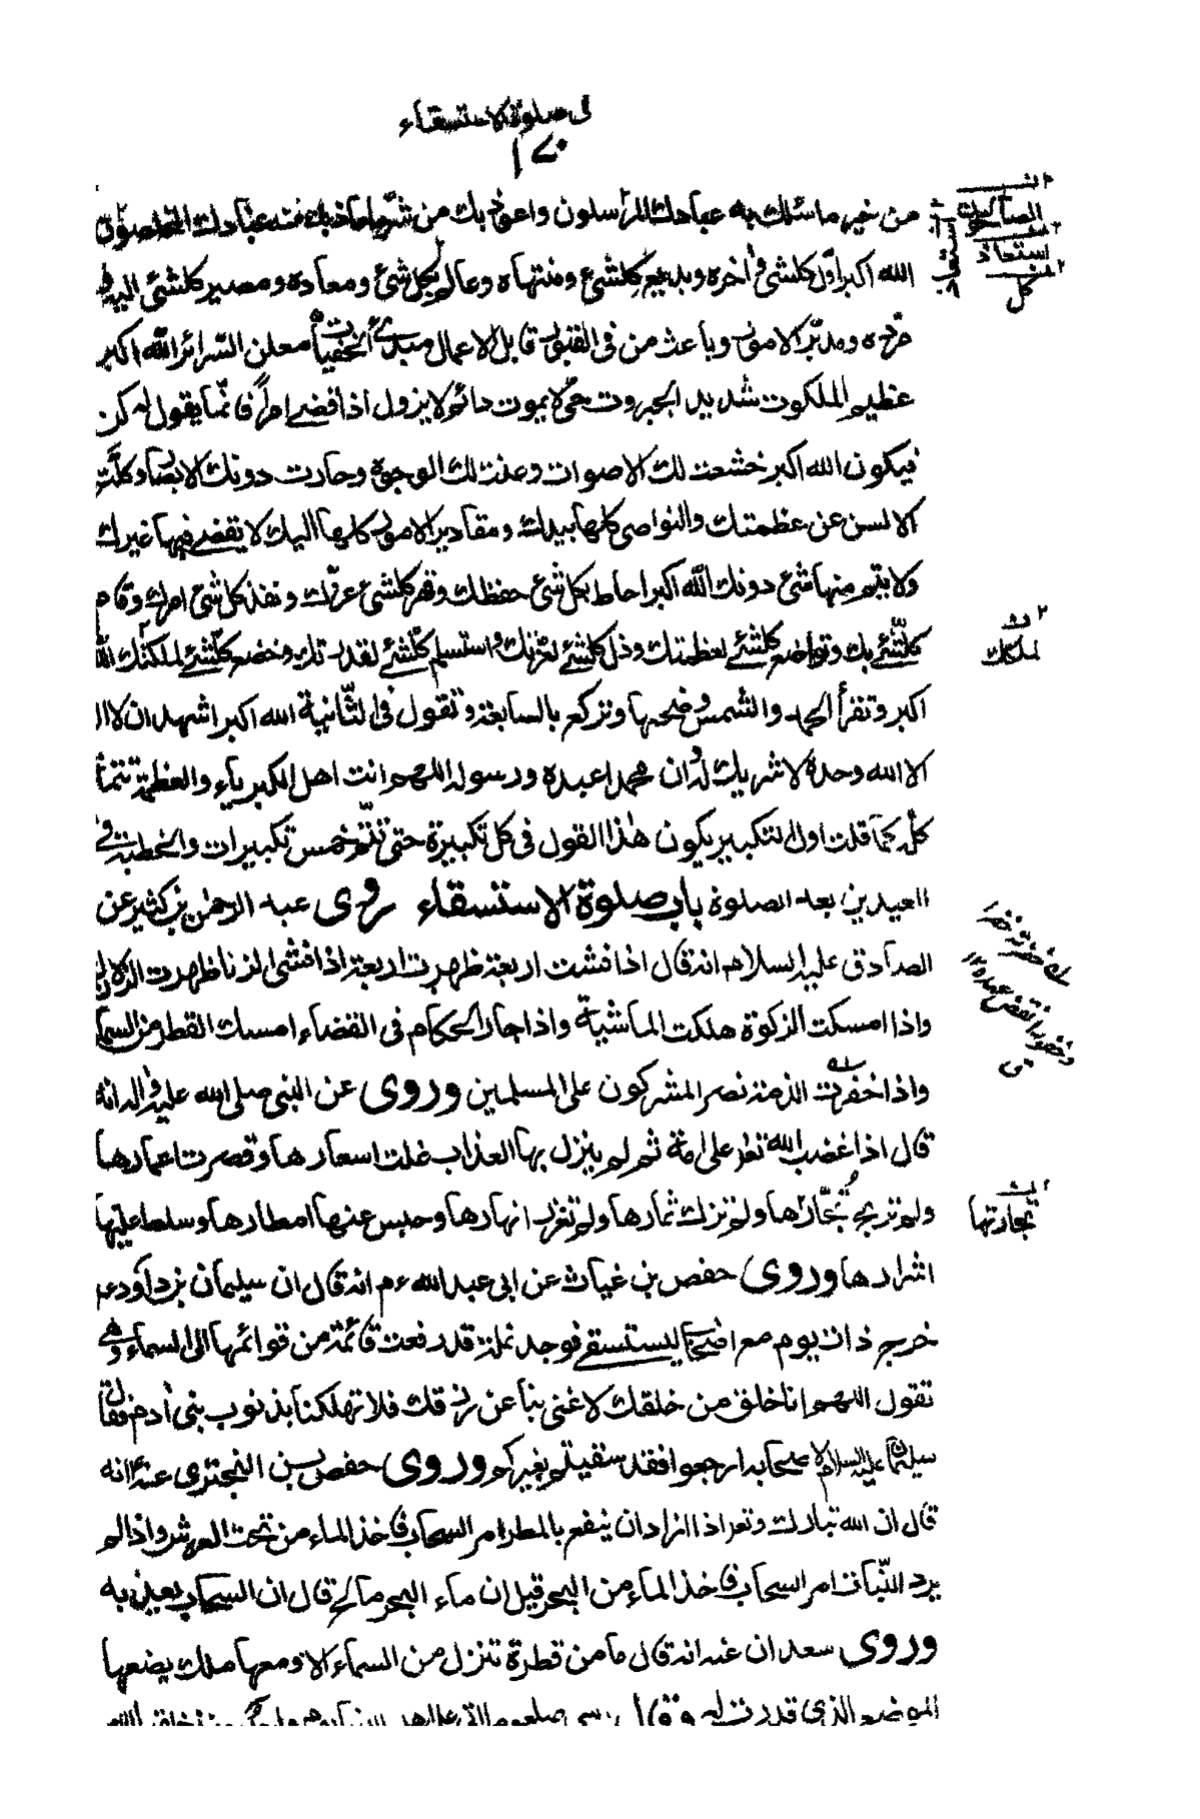 فى صلوة الاستسقاء
١٧٠
من خير ما سئلك به عبادك المرسلون واعوذ بك من شر ما عاذ بك منه عبادك المخلصون
الله اكبر اول كلشئ وآخره وبديع كلشئ ومنتهاه وعالم بكل شئ ومعاده ومصير كلشئ اليه و
مرده ومدبر الامور وباعث من فى القبور قابل الاعمال مبدئ الخفيات معلن السرائر الله اكبر
عظيم الملكوت شديد الجبروت حى لا يموت دائم لا يزول اذا قضى امرا فانما يقول له كن
فيكون الله اكبر خشعت لك الاصوات وعنت لك الوجوه وحارت دونك الابصار وكلت
الالسن عن عظمتك والنواصى كلها بيدك ومقادير الامور كلها اليك لا يقضى فيها غيرك
ولا يتم منها شئ دونك الله اكبر احاط بكل شئ حفظك وقهر كلشئ عزك ونفذ كل شئ امرك وقام
كلشئ بك وتواضع كلشئ لعظمتك وذل كلشئ لعزتك واستسلم كلشئ لقدرتك وخضع كلشئ لملكتك الله
اكبر وتقرأ الحمد والشمس وضحيها وتركع بالسابعة وتقول فى الثانية الله اكبر اشهد ان لا اله
الا الله وحده لا شريك له وان محمدا عبده ورسوله اللهم انت اهل الكبرياء والعظمة تتمه
كله كما قلت اول التكبير يكون هذا القول فى كل تكبيرة حتى تتم خمس تكبيرات والخطبة فى
العيدين بعد الصلوة باب صلوة الاستسقاء روى عبد الرحمن بن كثير عن
الصادق عليه السلام انه قال اذا فشت اربعة ظهرت اربعة اذا فشى الزنا ظهرت الزلازل
واذا امسكت الزكوة هلكت الماشية واذا جار الحكام فى القضاء امسك القطر من السماء
واذا خفرت الذمة نصر المشركون على المسلمين وروى عن النبى صلى الله عليه واله انه
قال اذا غضب الله تعا على امة ثم لم ينزل بها العذاب غلت اسعارها وقصرت اعمارها
ولم تربح تجارها ولم تزك ثمارها ولم تغزر انهارها وحبس عنها امطارها وسلط عليها
اشرارها وروى حفص بن غياث عن ابى عبد الله ع م انه قال ان سليمان بن داود ع م
خرج ذات يوم مع اصحابه ليستسقى فوجد نملة قد رفعت قائمة من قوائمها الى السماء وهى
تقول اللهم انا خلق من خلقك لا غنى بنا عن رزقك فلا تهلكنا بذنوب بنى آدم فقال
سليمان عليه السلام لاصحابه ارجعوا فقد سقيتم بغيركم وروى حفص بن البخترى عنه انه
قال ان الله تبارك وتعا اذا اراد ان ينفع بالمطر امر السحاب فاخذ الماء من تحت العرش واذا لم
يرد النبات امر السحاب فاخذ الماء من البحر قيل ان ماء البحر مالح قال ان السحاب يعذبه
وروى سعدان عنه انه قال ما من قطرة تنزل من السماء الا ومعها ملك يضعها
الموضع الذى قدرت له وقال
الصالحون
استعاذ
كل
لملكك
تجارتها